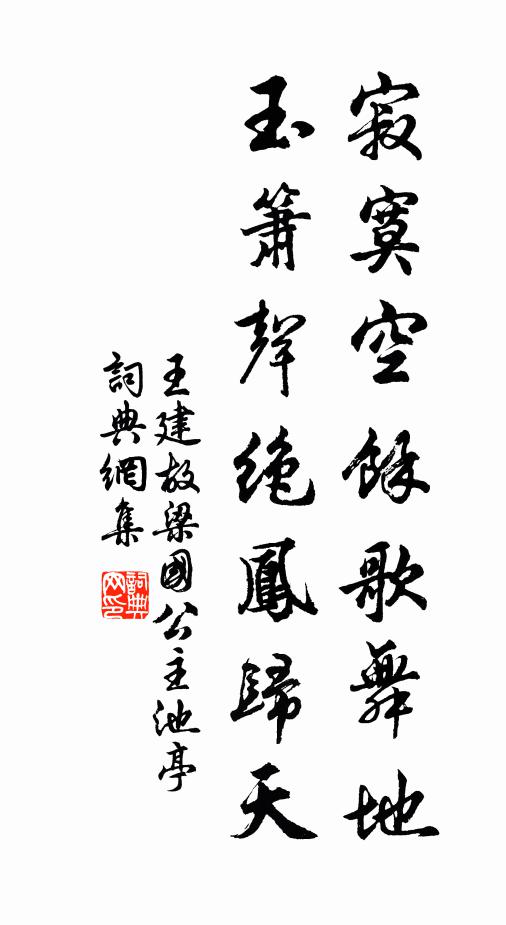 寂寞空餘歌舞地
玉簫聲絶鳳歸天
王建故梁國公主池亭
詞典網集
詞典
网印